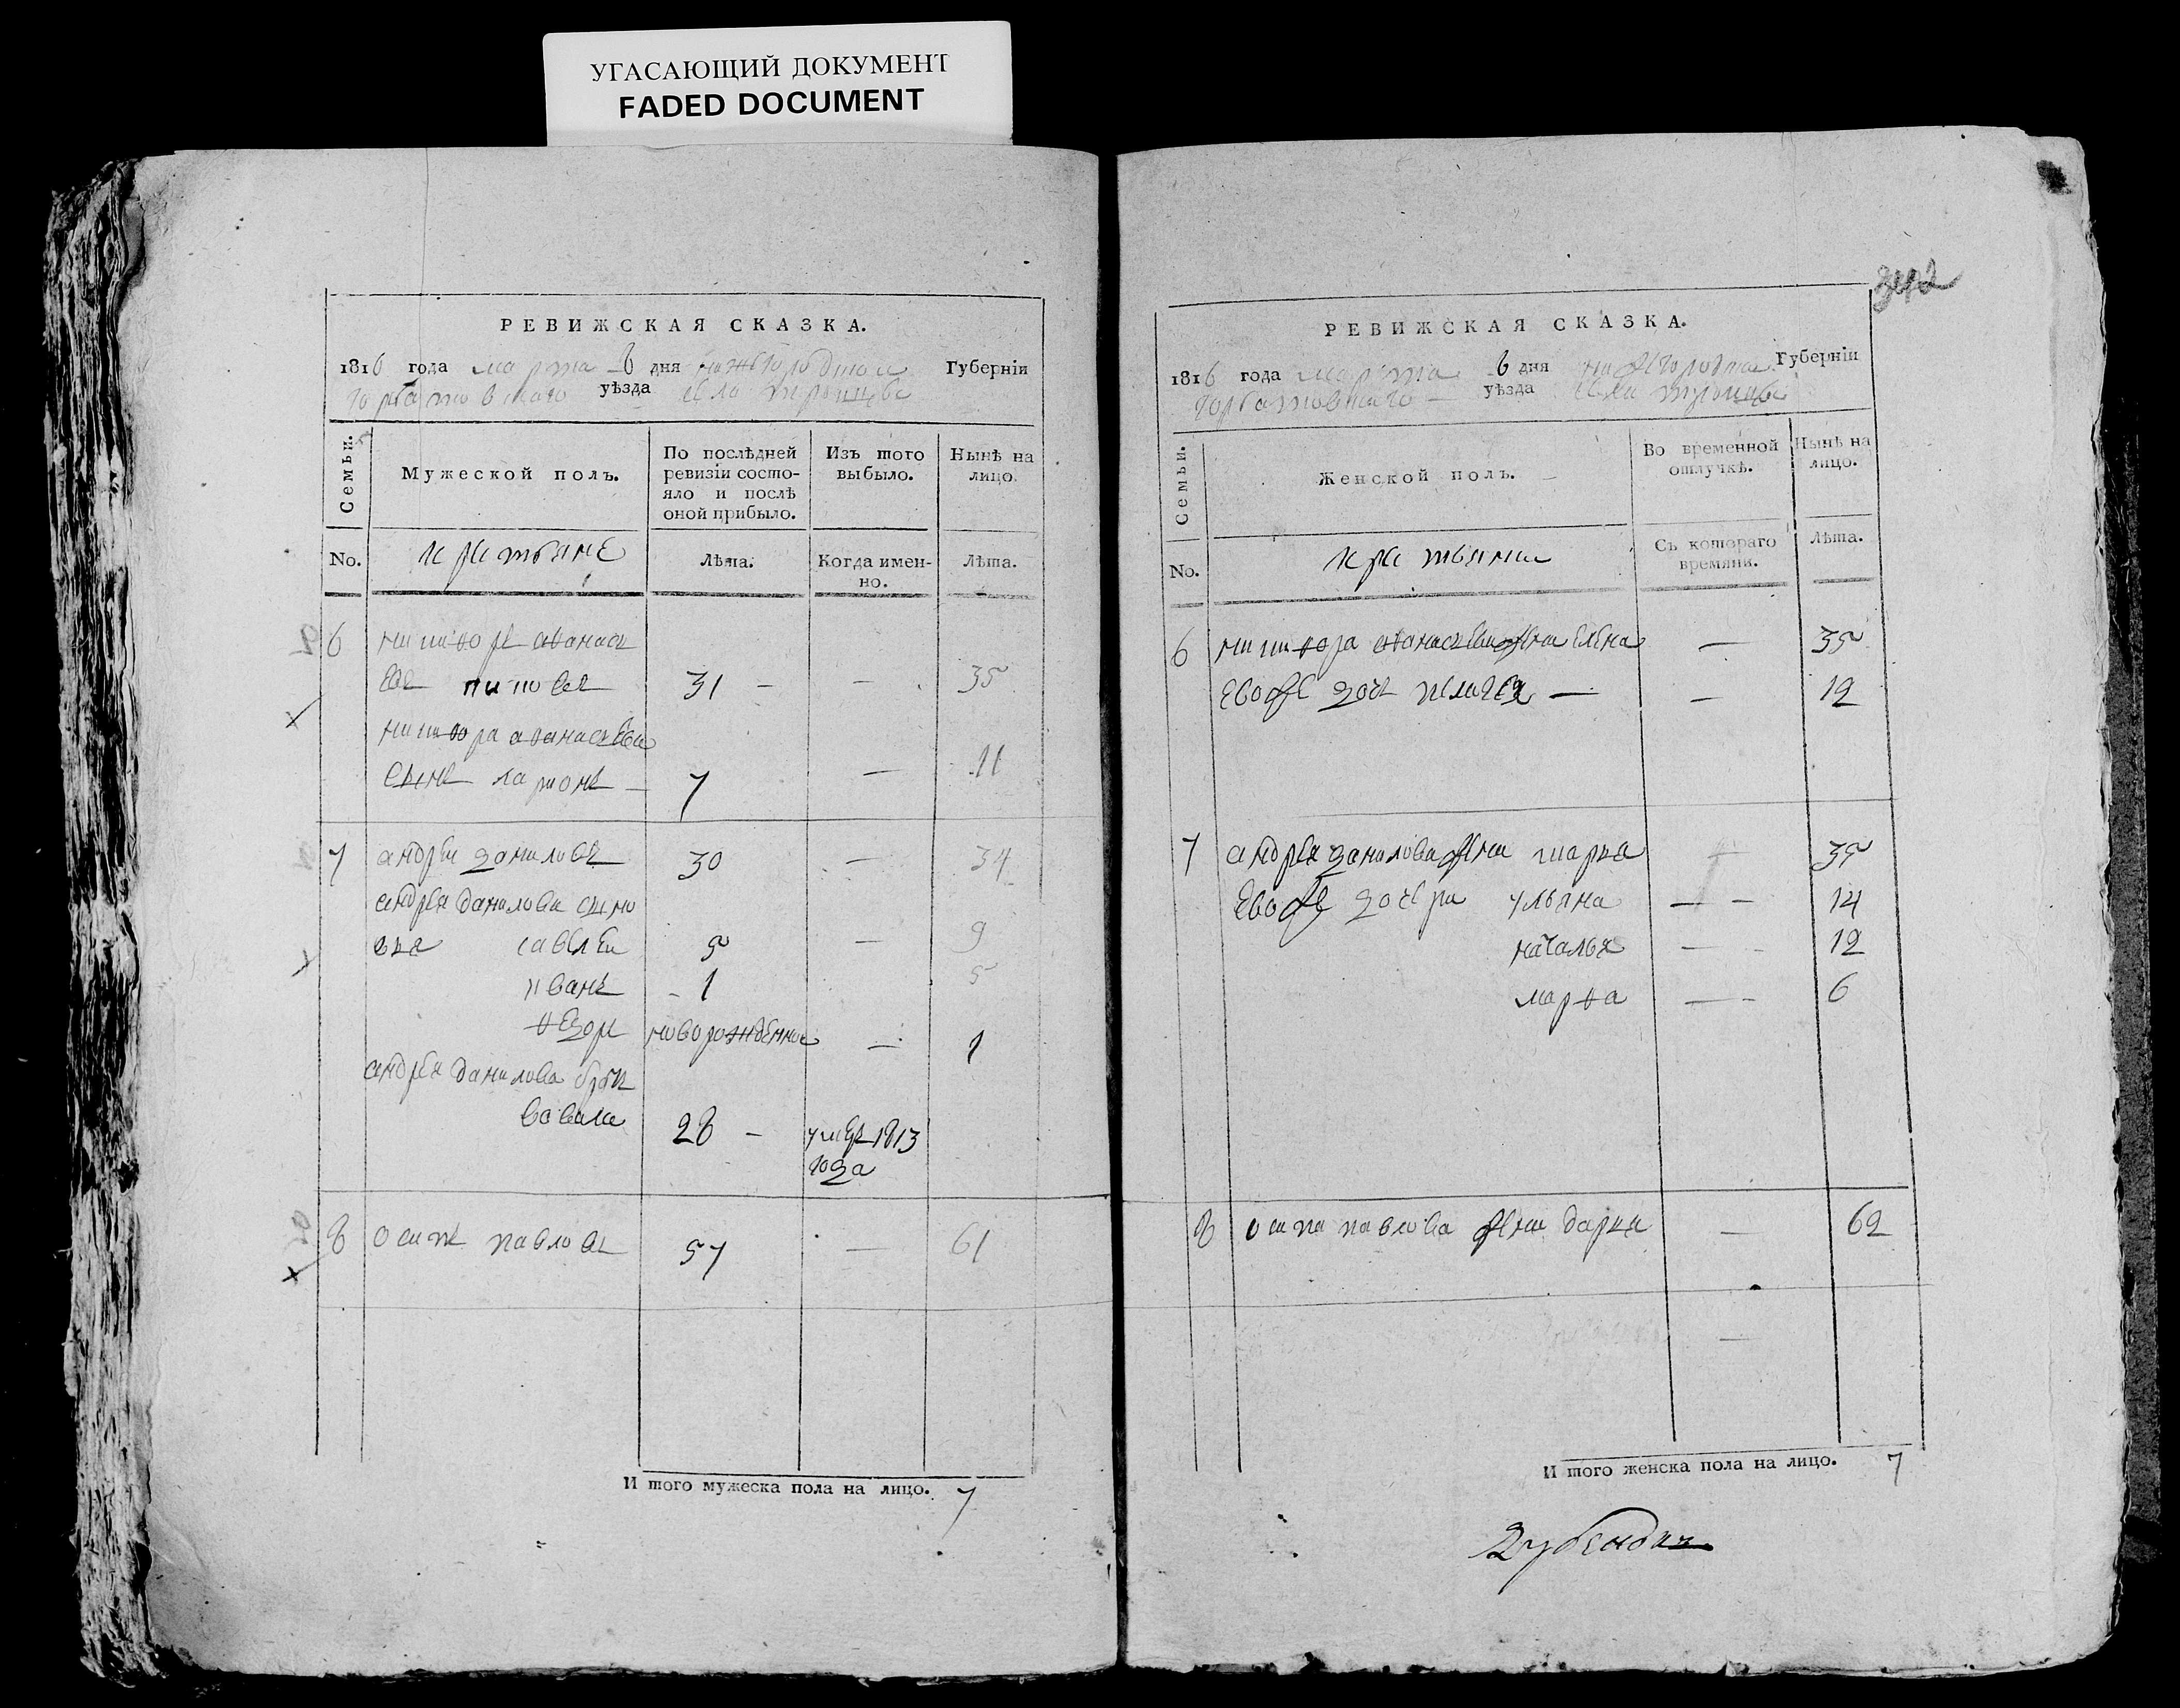 УГАСАЮЩИЙ ДОКУМЕНТ
FADED DOCUMENT
РЕВИЖСКАЯ СКАЗКА.
1816 года марта 6 дня нижегородской Губернiи
горбатовскаго уѣзда села троицы
Семьи.
Мужеской полъ.
По послѣдней ревизiи состояло и послѣ оной прибыло.
Изъ того выбыло.
Нынѣ на лицо.
No.
крстьяне
Лѣта.
Когда именно.
Лѣта.
6 никифоръ афанась
евъ питовъ 31 — — 35
никифора афанасьева
сынъ ларионъ — 7 — 11
7 андреи даниловъ 30 — 34
андрея данилова сыно
вья савелеи 5 — 9
иванъ 1 5
федоръ новорожденной — 1
андрея данилова братъ
вавила 28 — умеръ 1813
года
8 осипъ павловъ 57 — 61
И того мужеска пола на лицо. 7
342
РЕВИЖСКАЯ СКАЗКА.
1816 года марта 6 дня нижегородской Губернiи
горбатовскаго — уѣзда села троицы
Семьи.
Женской полъ.
Во временной отлучкѣ.
Нынѣ на лицо.
No.
крстьянки
Съ котораго времяни.
Лѣта.
6 никифора афанасьева жена елена — 35
евоже дочь пелагея — — 12
7 андрея данилова жена марья — 35
евоже дочери ульяна — — 14
наталья — - 12
марфа — - 6
8 осипа павлова жена дарья — 62
—
И того женска пола на лицо. 7